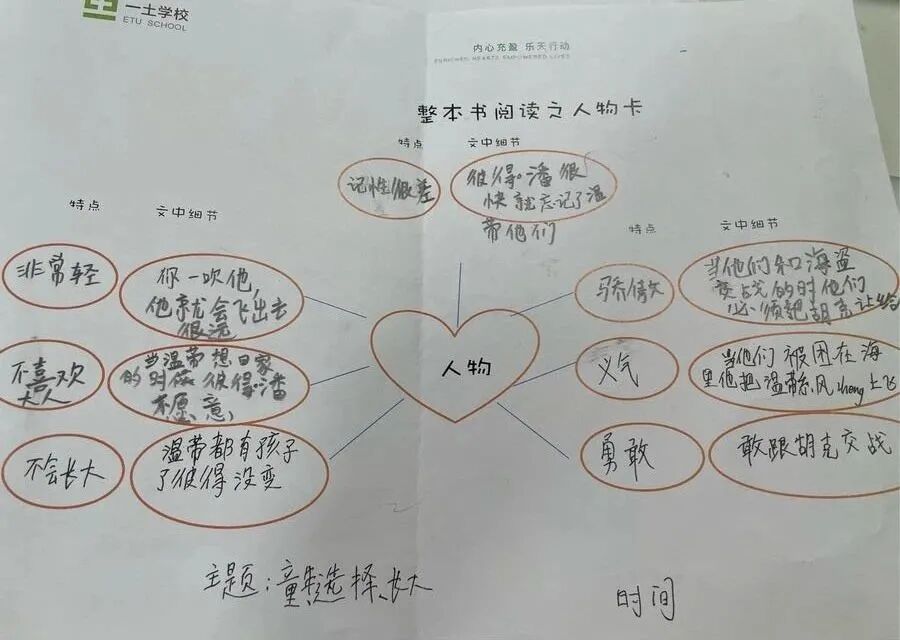 一土学校
ETU SCHOOL
内心充盈 乐天行动
ENRICHED HEARTS EMPOWERED LIVES
整本书阅读之人物卡
特点 文中细节
记性很差
彼得·潘很
快就忘记了温
带他们
特点 文中细节
非常轻
你一吹他,
他就会飞出去
很远
不喜欢
大人
当温带想回家
的时候彼得·潘
不愿意
不会长大
温带都有孩子
了彼得没变
人物
特点 文中细节
骄傲
当他们和海盗
交战的时他们
必须把胡克让给
义气
当他们被困在海
里他把温带系风zheng上飞
勇敢
敢跟胡克交战
主题:童年、选择、长大
时间